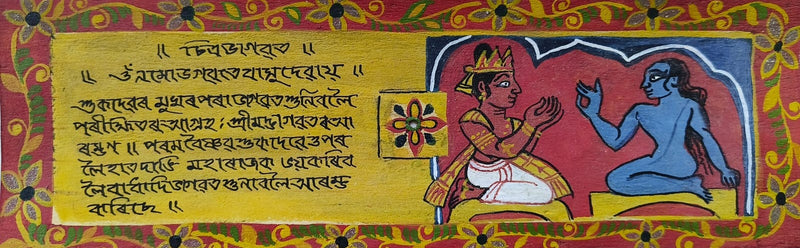 ॥ চিত্ৰভাগৱত ॥
॥ ওঁ নমো ভগৱতে বাসুদেৱায় ॥
শুকদেৱৰ মুখৰপৰা ভাগৱত শুনিবলৈ
পৰীক্ষিতৰ আগ্ৰহ; শ্ৰীমদ্ভাগৱতৰ আ
ৰম্ভণ ॥ পৰম বৈষ্ণৱ শুকদেৱে তপৰ
লৈ হাত দাঙি মহাৰাজক জয় কৰিব
লৈ বাধাদি ভাগৱত শুনাবলৈ আৰম্ভ
কৰিছে ॥